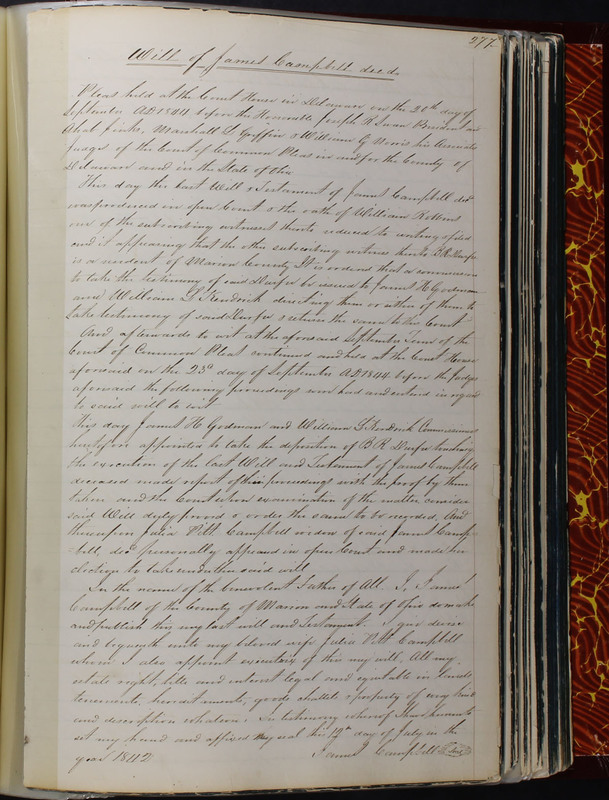 277
Will of James Campbell decd.
Pleas held at the Court House in Delaware on the 20th day of
September AD 1844 before the Honorable Joseph R Swan President and
Ahab Jinks, Marshall L Griffin & William G Norris his Associate
Judges of the Court of Common Pleas in and for the County of
Delaware and in the State of Ohio
This day the last Will & Testament of James Campbell decd
was produced in open Court & the oath of William Rollins
one of the subscribing witnesses thereto reduced to writing & filed
and it appearing that the other subscribing witness thereto B. R. Durfee
is a resident of Marion County It is ordered that a commission
to take the testimony of said Durfee be issued to James H Godman
and William L Kendrick directing them or either of them to
take testimony of said Durfee & return the same to this Court
And afterwards to wit at the aforesaid September Term of the
Court of Common Pleas continued and held at the Court House
aforesaid on the 23d day of September AD 1844 before the Judges
aforesaid the following proceedings were had and entered in regard
to said will to wit
This day James H Godman and William L Kendrick Commissioners
heretofore appointed to take the deposition of B R Durfee touching
the execution of the last Will and Testament of James Campbell
deceased made report of their proceedings with the proof by them
taken and the Court upon examination of the matter consider
said Will duly proved & order the same to be recorded. And
thereupon Julia Pitt Campbell widow of said James Camp-
-bell, decd personally appeared in open Court and made her
election to take under the said will
In the name of the benevolent Father of All. I, James
Campbell of the County of Marion and State of Ohio do make
and publish this my last will and Testament. I give devise
and bequeath unto my beloved wife Julia Pitt Campbell
whom I also appoint executrix of this my will, All my
estate right, title and interest legal and equitable in lands
tenements, hereditaments, goods chattels & property of every kind
and description whatever. In testimony whereof I have hereunto
set my hand and affixed my seal this 19th day of July in the
year 1842
James Campbell Seal